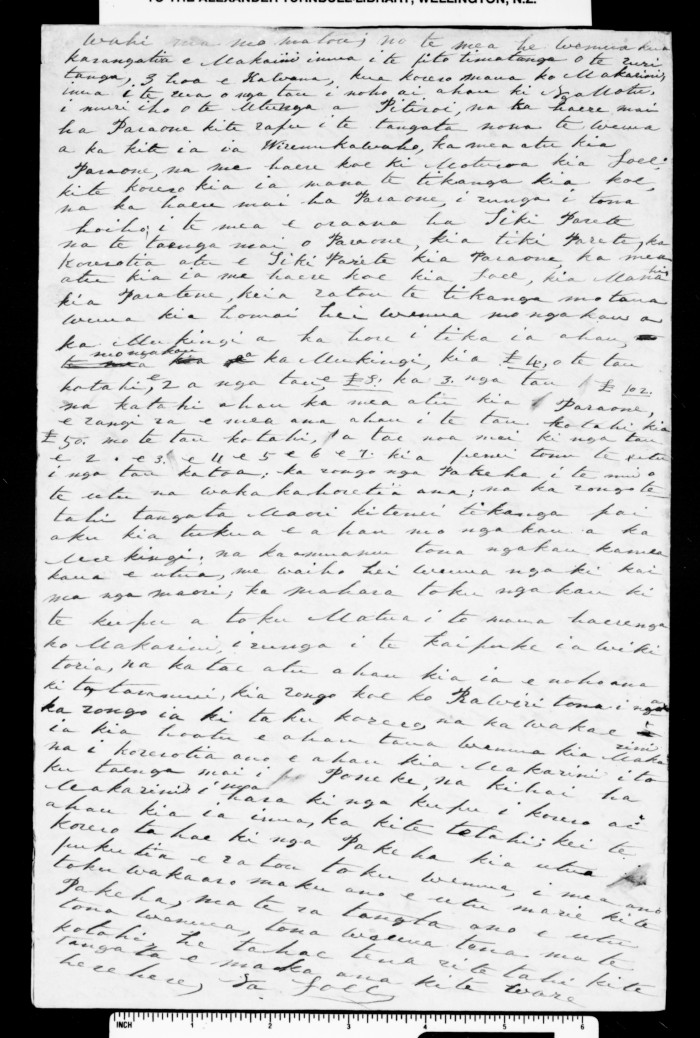 TO THE ALEXANDER TURNBULL LIBRARY, WELLINGTON, N.Z.
wahi mo matou; no te mea he wenua kua
karangatia e Makarini inua i te pito timatanga o te
tanga, 3 hoa e Halvana, kua korero mana ko Makarini,
inua i te wa o nga tau i noho ai ahau ki Nga Motu,
i muri iho o te Utunga a Pitiroi, na ka haere mai
ha Paraone kite rapu i te tangata nona te wenua
a ka kite ia ia Wiremu Kawaho, ka mea atu kia
Paraone, na me haere koe ki Moturoa kia Poll;
kite korero kia ia mana te tikanga kia koe,
na ka haere mai ha Paraone, i runga i tona
hoiho; i te mea e oraana ha Tiki Parete
na te taenga mai o Paraone, kia Tiki Parete, ka
korerotia atu e Tiki Parete kia Paraone ka mea
atu kia ia me haere koe kia Poll, kia Mana
kia Paratene, keia ratou te tikanga mo tana
wenua kia homai hei wenua mo nga kau a
ka Mu Kingi a ka hori i tika ia ahau,
mo nga kau a ka Mu Kingi, kia £ 14, o te tau
kotahi, e 2 a nga tau, £ 3. ka 3. nga tau £ 102.
na katahi ahau ka mea atu kia Paraone,
e rangi ra e mea ana ahau i te tau kotahi kia
£ 50. mo te tau kotahi, a tae noa mai ki nga tau
e 2. e 3. e 4 e 5 e 6 e 7. kia penei tonu te utu
i nga tau katoa; ka rongo nga Pakeha i te nui o
te utu na wakakahoretia ana; na ka rongo te
tahi tangata Maori kitenei tikanga pai
aku kia tukua e ahau mo nga kau a ka
Mu Kingi; na ka anuanu tona ngakau kamea
kaua e utua, me waiho hei wenua nga ki kai
ma nga maori; ka mahara toku ngakau ki
te kupu a toku Matua i to maua haerenga
ko Makarini, i runga i te kaipuke ia Wiki
toria, na ka tae atu ahau kia ia e noho ana
ki tawanui, kia rongo koe ko Rawiri tona ingoa
ka rongo ia ki taku korero, na ka wakae
ia kia hoatu e ahau tana wenua kia Maka rini
na i korerotia ano e ahau kia Makarini i to
ku taenga mai i Poneke, na kihai ha
Makarini i hara ki nga kupu i korero ai
ahau kia ia inua, ka kite tetahi; kei te
korero ta hae ki nga Pakeha kia utua
pukutia e ratou toku wenua, i mea ano
toku wakaaro maku ano e utu marie kite
Pakeha, ma te ra tangata ano e utu
tona wenua, tona wenua tona ma te
kotahi he tahae tena rite tahi kite
tangata e maka ana kite ware
herehere, Na Poll
INCH 1 2 3 4 5 6